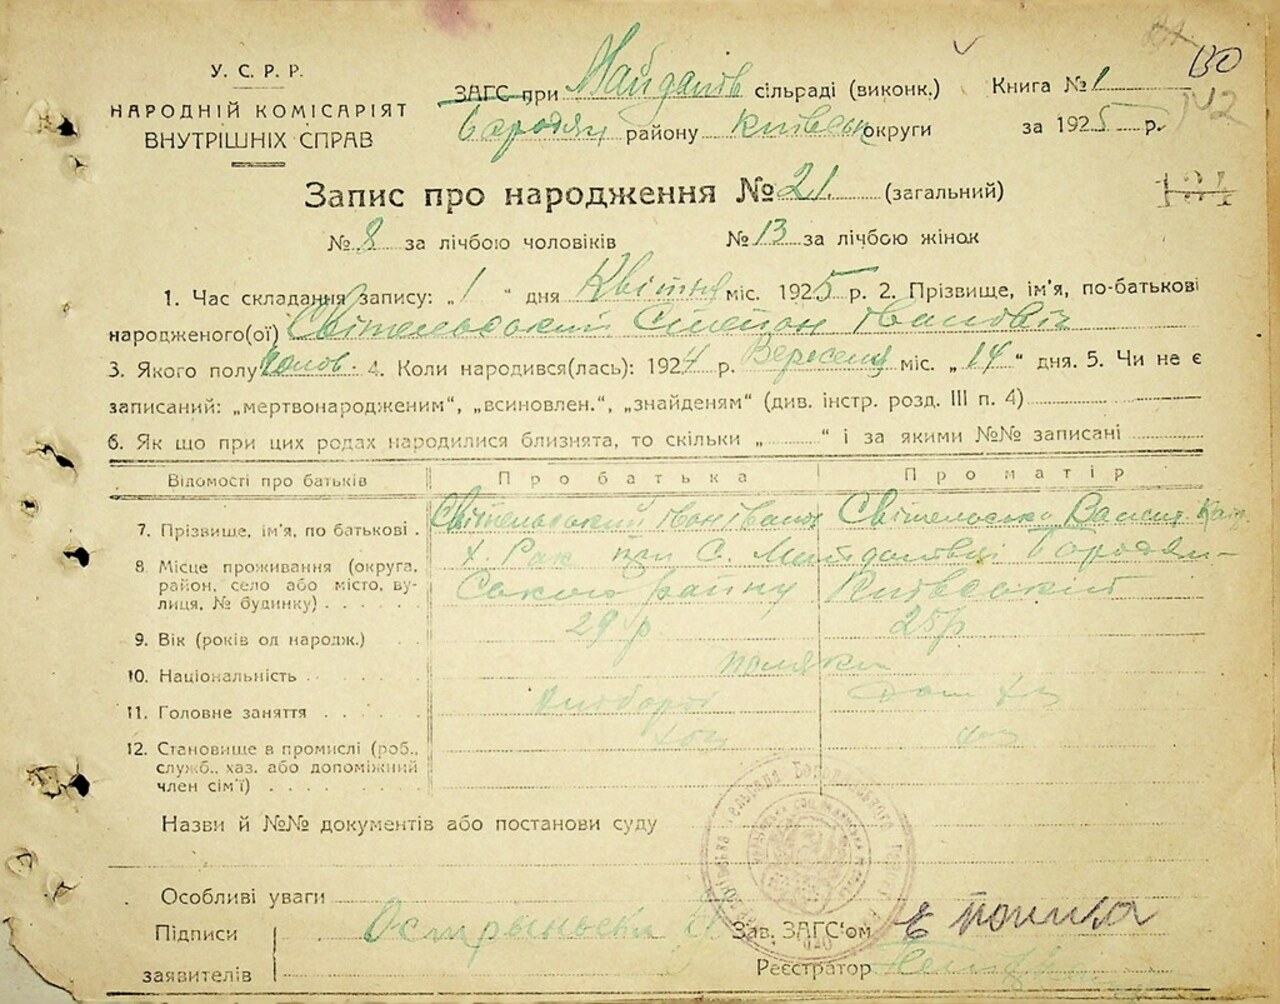 У. С. Р. Р.
НАРОДНІЙ КОМІСАРІЯТ
ВНУТРІШНІХ СПРАВ
ЗАГС при Майданів сільраді (виконк.)
Бородян району Київськ округи
Книга № 1
за 1925 р.
130
142
134
Запис про народження № 21. (загальний)
№ 8 за лічбою чоловіків № 13 за лічбою жінок
1. Час складання запису: „ 1 “ дня Квітня міс. 1925 р. 2. Прізвище, ім'я, по-батькові
народженого(ої) Світельський Степан Іванович
3. Якого полу Чолов. 4. Коли народився(лась): 1924 р. Вересня міс. „ 14 “ дня. 5. Чи не є
записаний: „мертвонародженим“, „всиновлен.“, „знайденям“ (див. інстр. розд. III п. 4)
6. Як що при цих родах народилися близнята, то скільки „ “ і за якими №№ записані
Відомості про батьків Про батька Про матір
7. Прізвище, ім'я, по батькові . Світельський Іван Іванов Світельська
8 Місце проживання (округа, район, село або місто, вулиця, № будинку) х. Рак при С. Майданівці Бородян-
ського району Київський
9. Вік (років од народж.) 29 р 25 р
10. Національність поляки
11. Головне заняття
12. Становище в промислі (роб., служб., хаз. або допоміжний член сім'ї) хоз
Назви й №№ документів або постанови суду
Особливі уваги
Підписи
заявителів
Зав. ЗАГС'ом
Реєстратор